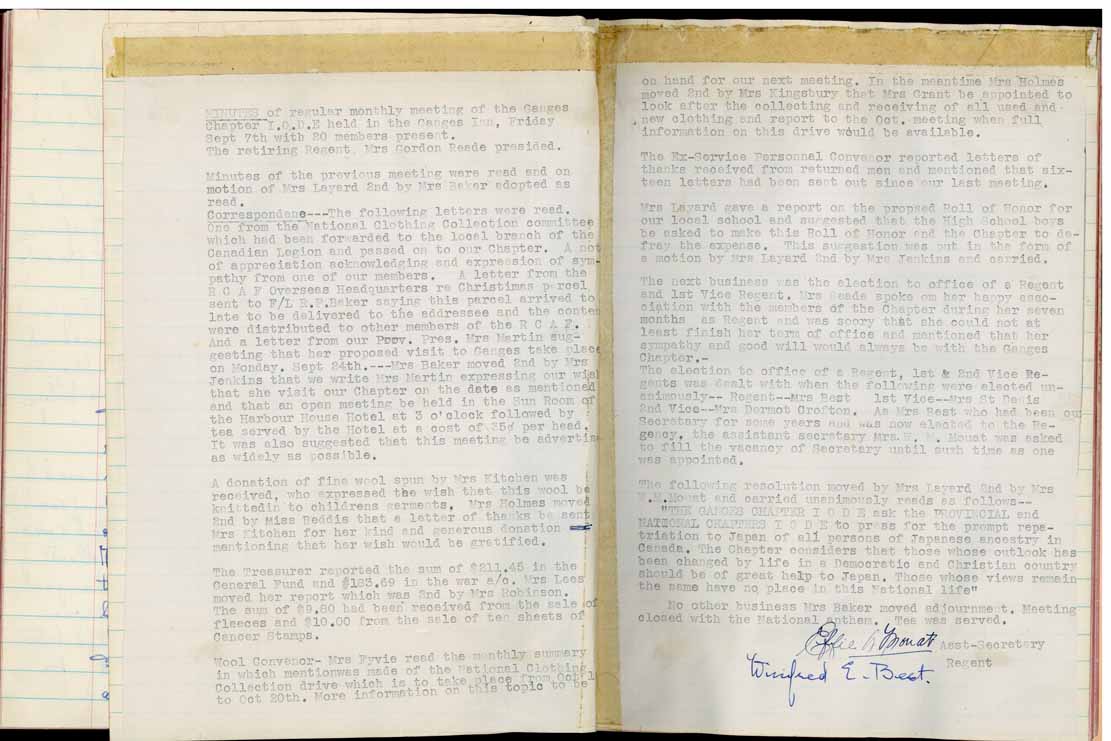 MINUTES of regular monthly meeting of the Ganges
Chapter I.O.D.E held in the Ganges Inn, Friday
Sept 7th with 20 members present.
The retiring Regent, Mrs Gordon Reade presided.
Minutes of the previous meeting were read and on
motion of Mrs Layard 2nd by Mrs Baker adopted as
read.
Correspondane---The following letters were read.
One from the National Clothing Collection committee
which had been forwarded to the local branch of the
Canadian Legion and passed on to our Chapter. A not
of appreciation acknowledging and expression of sym-
pathy from one of our members. A letter from the
R C A F Overseas Headquarters re Christmas parcel
sent to F/L R.P.Baker saying this parcel arrived to
late to be delivered to the addressee and the conten
were distributed to other members of the R C A F.
And a letter from our Prov. Pres. Mrs Martin sug-
gesting that her proposed visit to Ganges take place
on Monday. Sept 24th.---Mrs Baker moved 2nd by Mrs
Jenkins that we write Mrs Martin expressing our wish
that she visit our Chapter on the date as mentioned
and that an open meeting be held in the Sun Room of
the Harbour House Hotel at 3 o'clock followed by
tea served by the Hotel at a cost of 35¢ per head.
It was also suggested that this meeting be advertise
as widely as possible.
A donation of fine wool spun by Mrs Kitchen was
received, who expressed the wish that this wool be
knittedin to childrens garments. Mrs Holmas moved
2nd by Miss Beddis that a latter of thanks be sent
Mrs Kitchen for her kind and generous donation
mentioning that her wish would be gratified.
The Treasurer reported the sum of $211.45 in the
General Fund and $183.69 in the war a/c. Mrs Lees
moved her report which was 2nd by Mrs Robinson.
The sum of $9.60 had been received from the sale of
fleeces and $10.00 from the sale of ten sheets of
Cancer Stamps.
Wool Convenor- Mrs Fyvie read the monthly summary
in which mentionwas made of the National Clothing
Collection drive which is to take place from Oct 1
to Oct 20th. More information on this topic to be
on hand for our next meeting. In the meantime Mrs Holmes
moved 2nd by Mrs Kingsbury that Mrs Grant be appointed to
look after the collecting and receiving of all used and
new clothing and report to the Oct. meeting when full
information on this drive would be available.
The Ex-Service Personnal Convenor reported letters of
thanks received from returned men and mentioned that six-
teen letters had been sent out since our last meeting.
Mrs Layard gave a report on the propsed Roll of Honor for
our local school and suggested that the High School boys
be asked to make this Roll of Honor and the Chapter to de-
fray the expense. This suggestion was put in the form of
a motion by Mrs Layard 2nd by Mrs Jenkins and carried.
The next business was the election to office of a Regent
and 1st Vice Regent. Mrs Reade spoke om her happy asso-
ciation with the members of the Chapter during her seven
months as Regent and was soory that she could not at
least finish her term of office and mentioned that her
sympathy and good will would always be with the Ganges
Chapter.-
The election to office of a Regent, 1st & 2nd Vice Re-
gents was dealt with when the following were elected un-
animously-- Regent--Mrs Best 1st Vice--Mrs St Denis
2nd Vice--Mrs Dermot Crofton. As Mrs Best who had been our
Secretary for some years and was now elected to the Re-
gency, the assistant secretary Mrs. W. M. Mouat was asked
to fill the vacancy of Secretary until such time as one
was appointed.
The following resolution moved by Mrs Layard 2nd by Mrs
W.M.Mouat and carried unanimously reads as follows--
"THE GANGES CHAPTER I O D E ask the PROVINCIAL and
NATIONAL CHAPTERS I O D E to press for the prompt repa-
triation to Japan of all persons of Japanese ancestry in
Canada. The Chapter considers that those whose outlook has
been changed by life in a Democratic and Christian country
should be of great help to Japan. Those whose views remain
the same have no place in this National life"
No other business Mrs Baker moved adjournment. Meeting
closed with the National anthem. Tea was served.
Effie Mouat Asst-Secretary
Regent
Winifred E. Best.